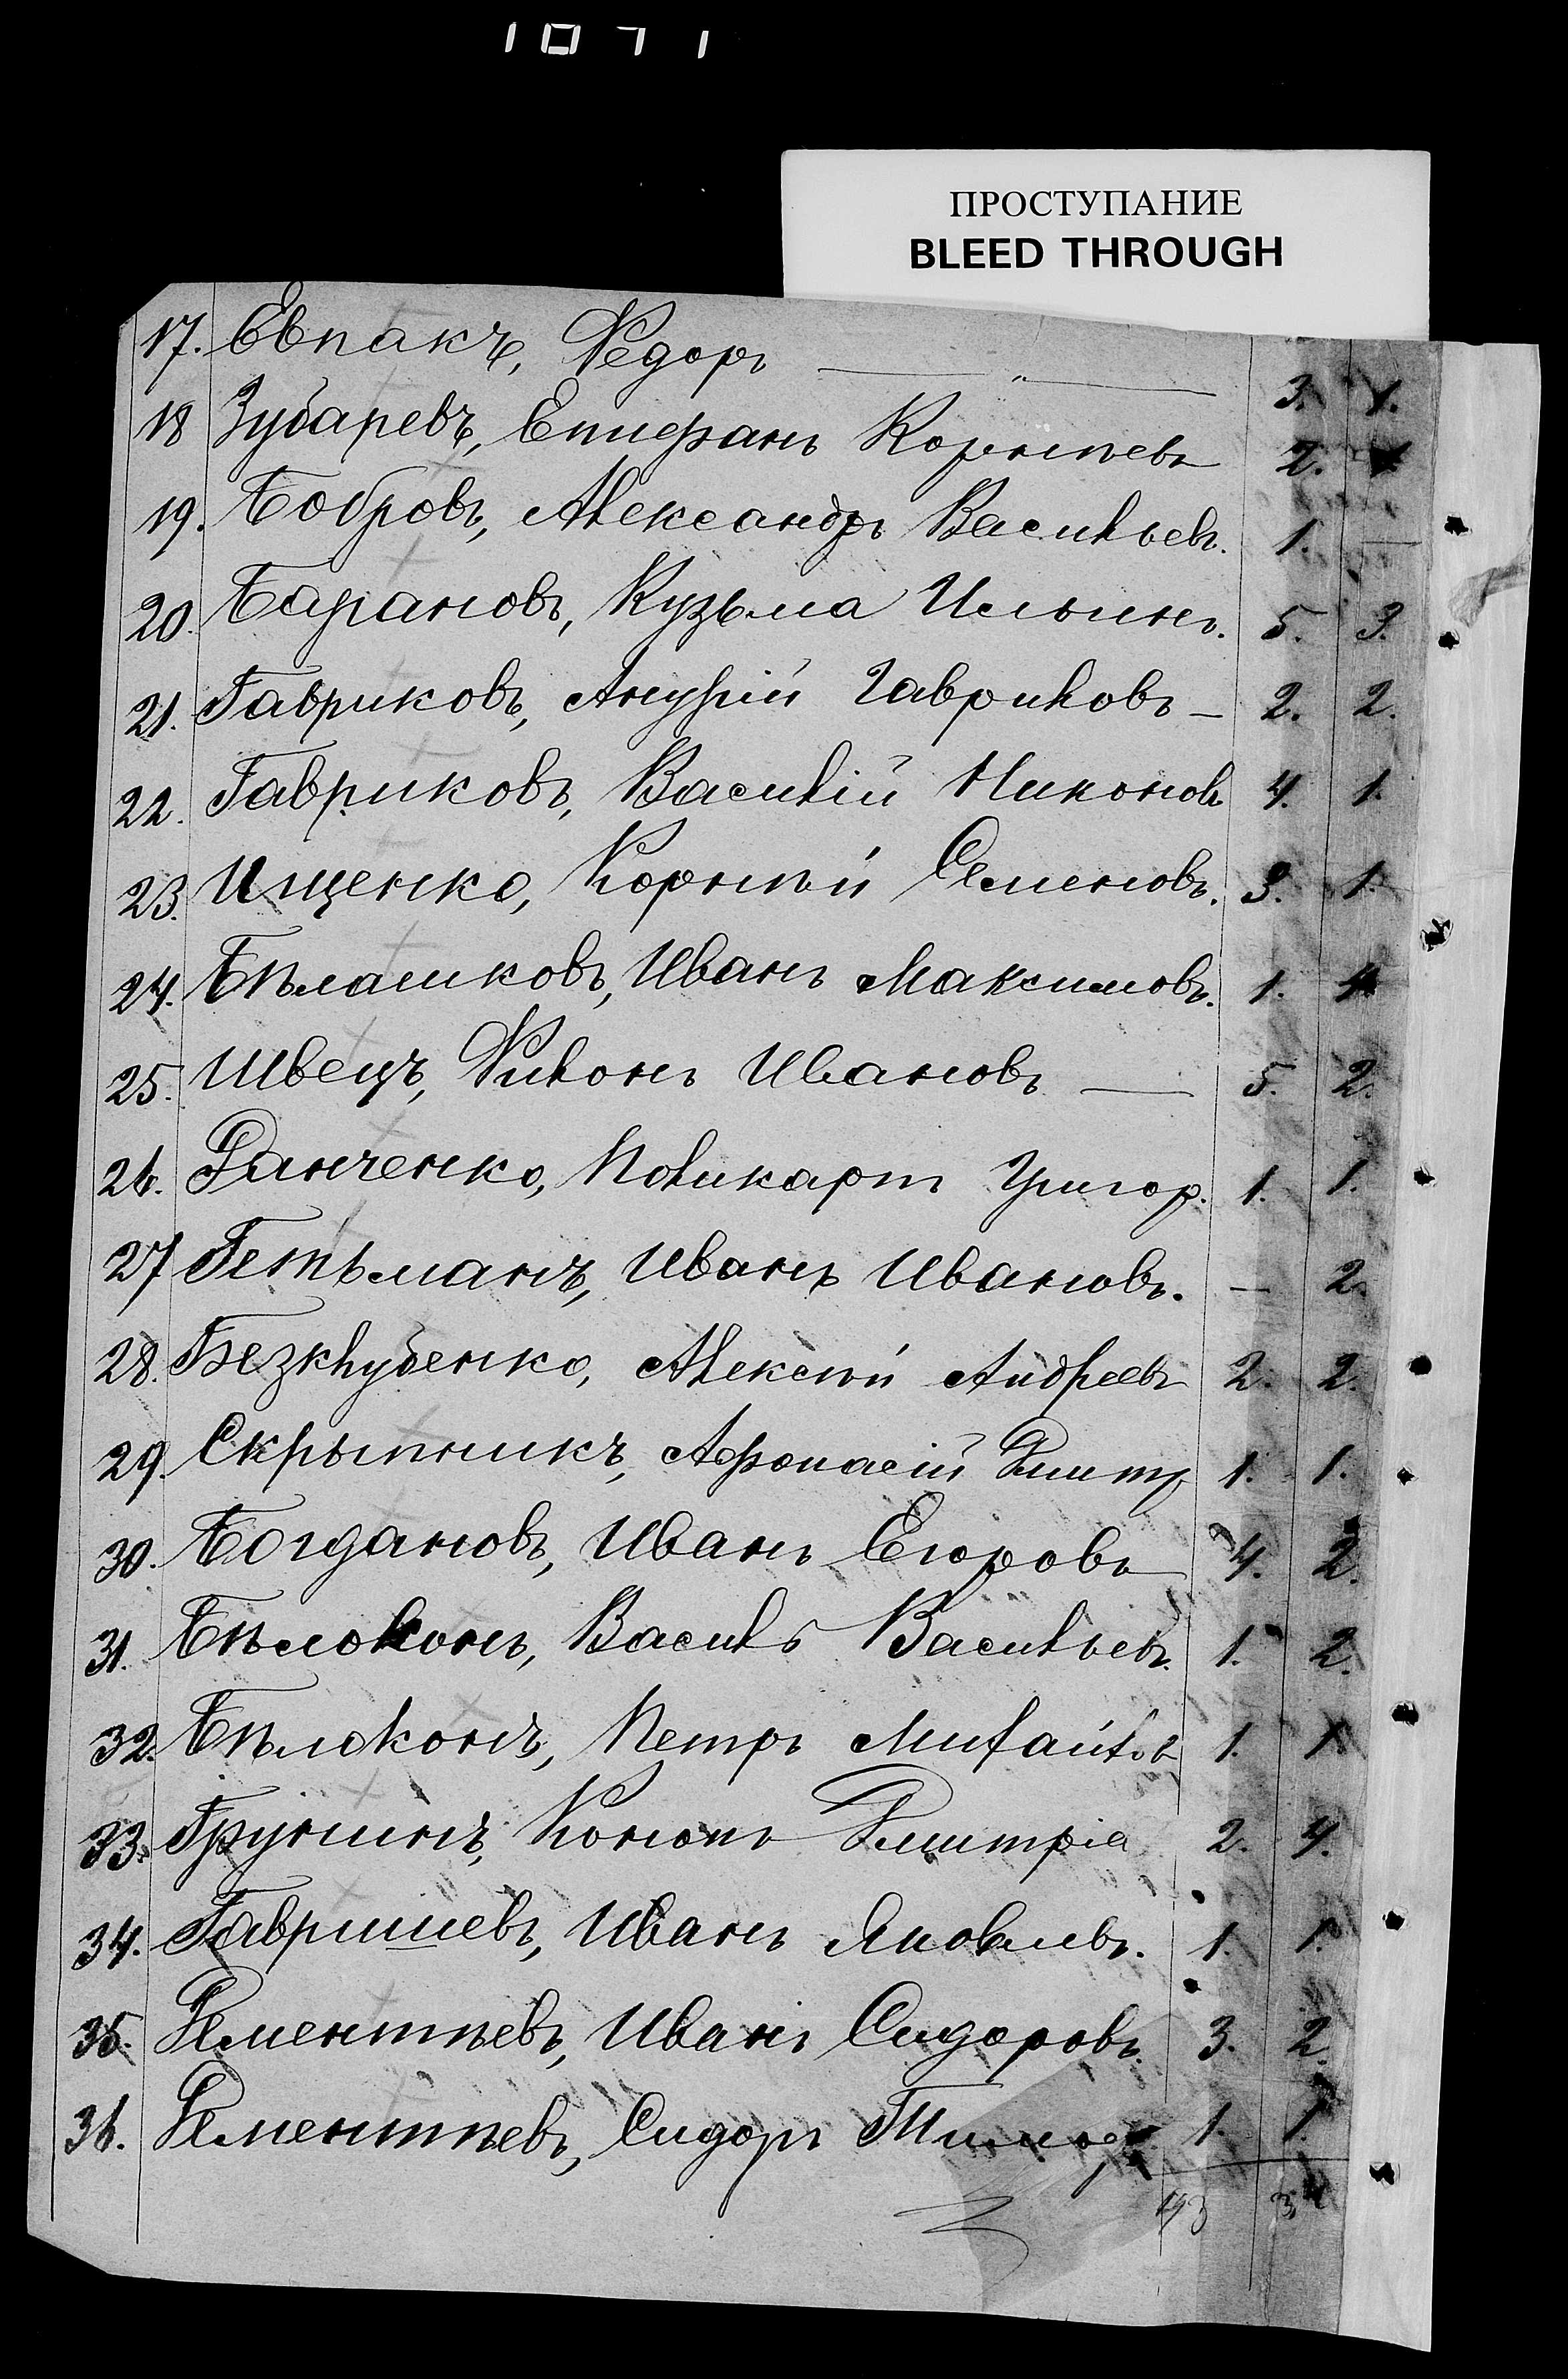 1071
ПРОСТУПАНИЕ
BLEED THROUGH
17. Евпакъ, Федоръ — " — 3. 1.
18 Зубаревъ, Епифанъ Корнѣевъ 2. 1
19. Бобровъ, Александръ Васильевъ. 1. —
20. Барановъ, Кузьма Ильинъ. 5. 3.
21. Гавриковъ, Ануфрій Гавриловъ — 2. 2.
22. Гавриковъ, Василій Никоновъ 4. 1.
23. Ищенко, Корнѣй Семеновъ. 3. 1.
24. Бѣлашковъ, Иванъ Максимовъ. 1. 4
25. Швецъ, Филонъ Ивановъ — 5. 2.
26. Ринченко, Поликарпъ Григор. 1. 1.
27 Гетьманъ, Иванъ Ивановъ. — 2.
28. Безклубенко, Алексѣй Андреевъ 2. 2.
29. Скрыпникъ, Афонасій Дмитр 1. 1.
30. Богдановъ, Иванъ Егоровъ 4. 2.
31. Бѣлоконъ, Василь Васильевъ. 1. 2.
32. Бѣлоконъ, Петръ Михайлов 1. 1
33. Грунинъ, Кононъ Дмитріе 2. 4.
34. Гавришевъ, Иванъ Яковлевъ. 1. 1.
35. Дементьевъ, Иванъ Сидоровъ. 3. 2.
36. Дементьевъ, Сидоръ 1. 1.